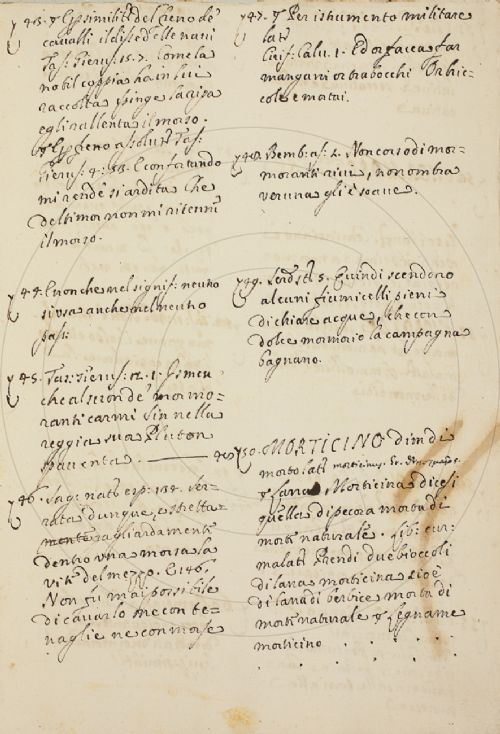 743. p similit: del freno de
cavalli il disse delle navi
Tas: Gerus: 15. 7. Come la
nobil coppia ha in lui
raccolta spinge la ripa
e gli rallenta il morso.
freno assolut: Tas:
Gerus: 4: 88. E confortando
mi rendè si ardita che
del timor non mi ritenne
il morso.
744. E non che nel signif: neutro
si usa anche nel neutro
pass:
745. Tas: Gerus: 12. 1.
che al suon de' mormo=
ranti carmi sin nella
reggia sua Pluton
spaventa.
746. Sag: nat: esp: 134. Ser=
rata dunque, e stretta
gagliardamente
dentro una morsa la
vite del mezzo. E 146.
Non fu mai possibile
di cavarlo ne con te=
naglie ne con morse
747. p Per istrumento militare
lat:
Guis: Calv. 1. Ed or faccia far
mangani or trabocchi Or bric=
cole e matai.
748. Bemb: as: 2. Non corso di mor=
moranti rivi, non ombra
veruna gli è soave.
749. 5. Quindi scendono
alcuni fiumicelli pieni
di chiare acque, che con
dolce mormorio la campagna
bagnano.
750. MORTICINO dim: di
morto lat: morticinus. Gr.
p lana. Morticina dicesi
quella di pecora morta di
morte naturale. Lib: cur:
malat: Prendi due bioccoli
di lana morticina cioè
di lana di berbice morta di
morte naturale p legname
morticino